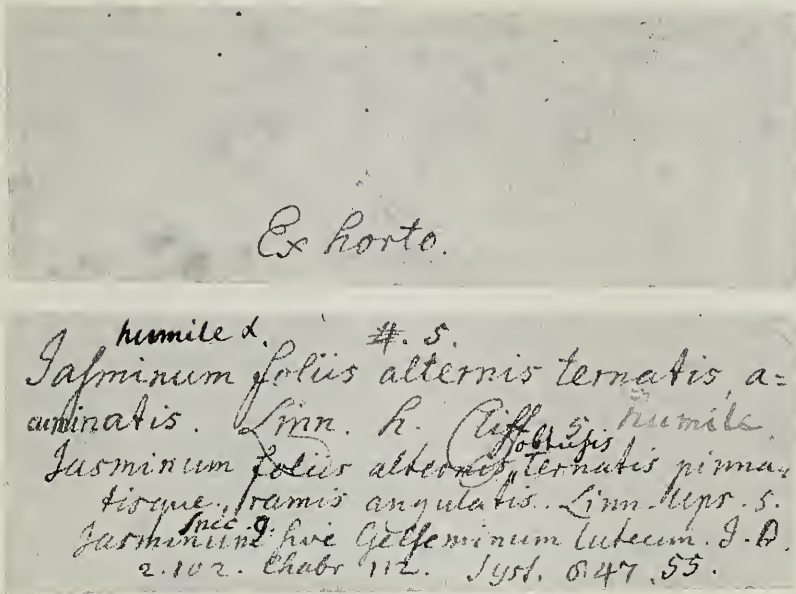 Ex horto.
humile α. #. 5.
Jasminum foliis alternis ternatis, a=
cuminatis. Linn. h. Cliff. 5. humile
obtusis
Jasminum foliis alternis, ternatis pinna-
tisque, ramis angulatis. Linn. Ups. 5.
Spec. 9.
Jasminum sive Gelseminum luteum. J. B.
2. 102. Chabr 112. Syst. 647. 55.